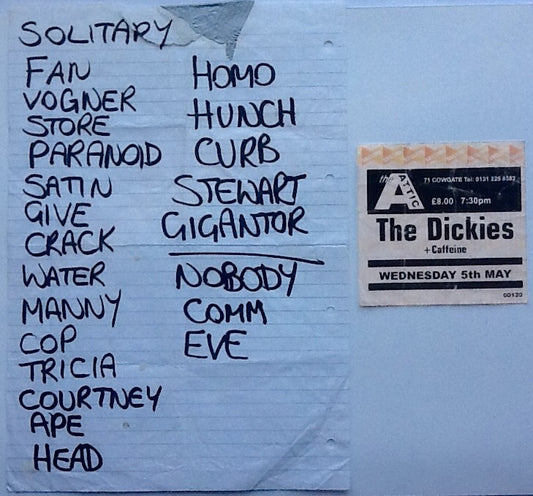 SOLITARY
FAN
VOGNER
STORE
PARANOID
SATIN
GIVE
CRACK
WATER
MANNY
COP
TRICIA
COURTNEY
APE
HEAD
HOMO
HUNCH
CURB
STEWART
GIGANTOR
NOBODY
COMM
EVE
the ATTIC
71 COWGATE Tel: 0131 225 8382
£8.00 7:30pm
The Dickies
+ Caffeine
WEDNESDAY 5th MAY
00120